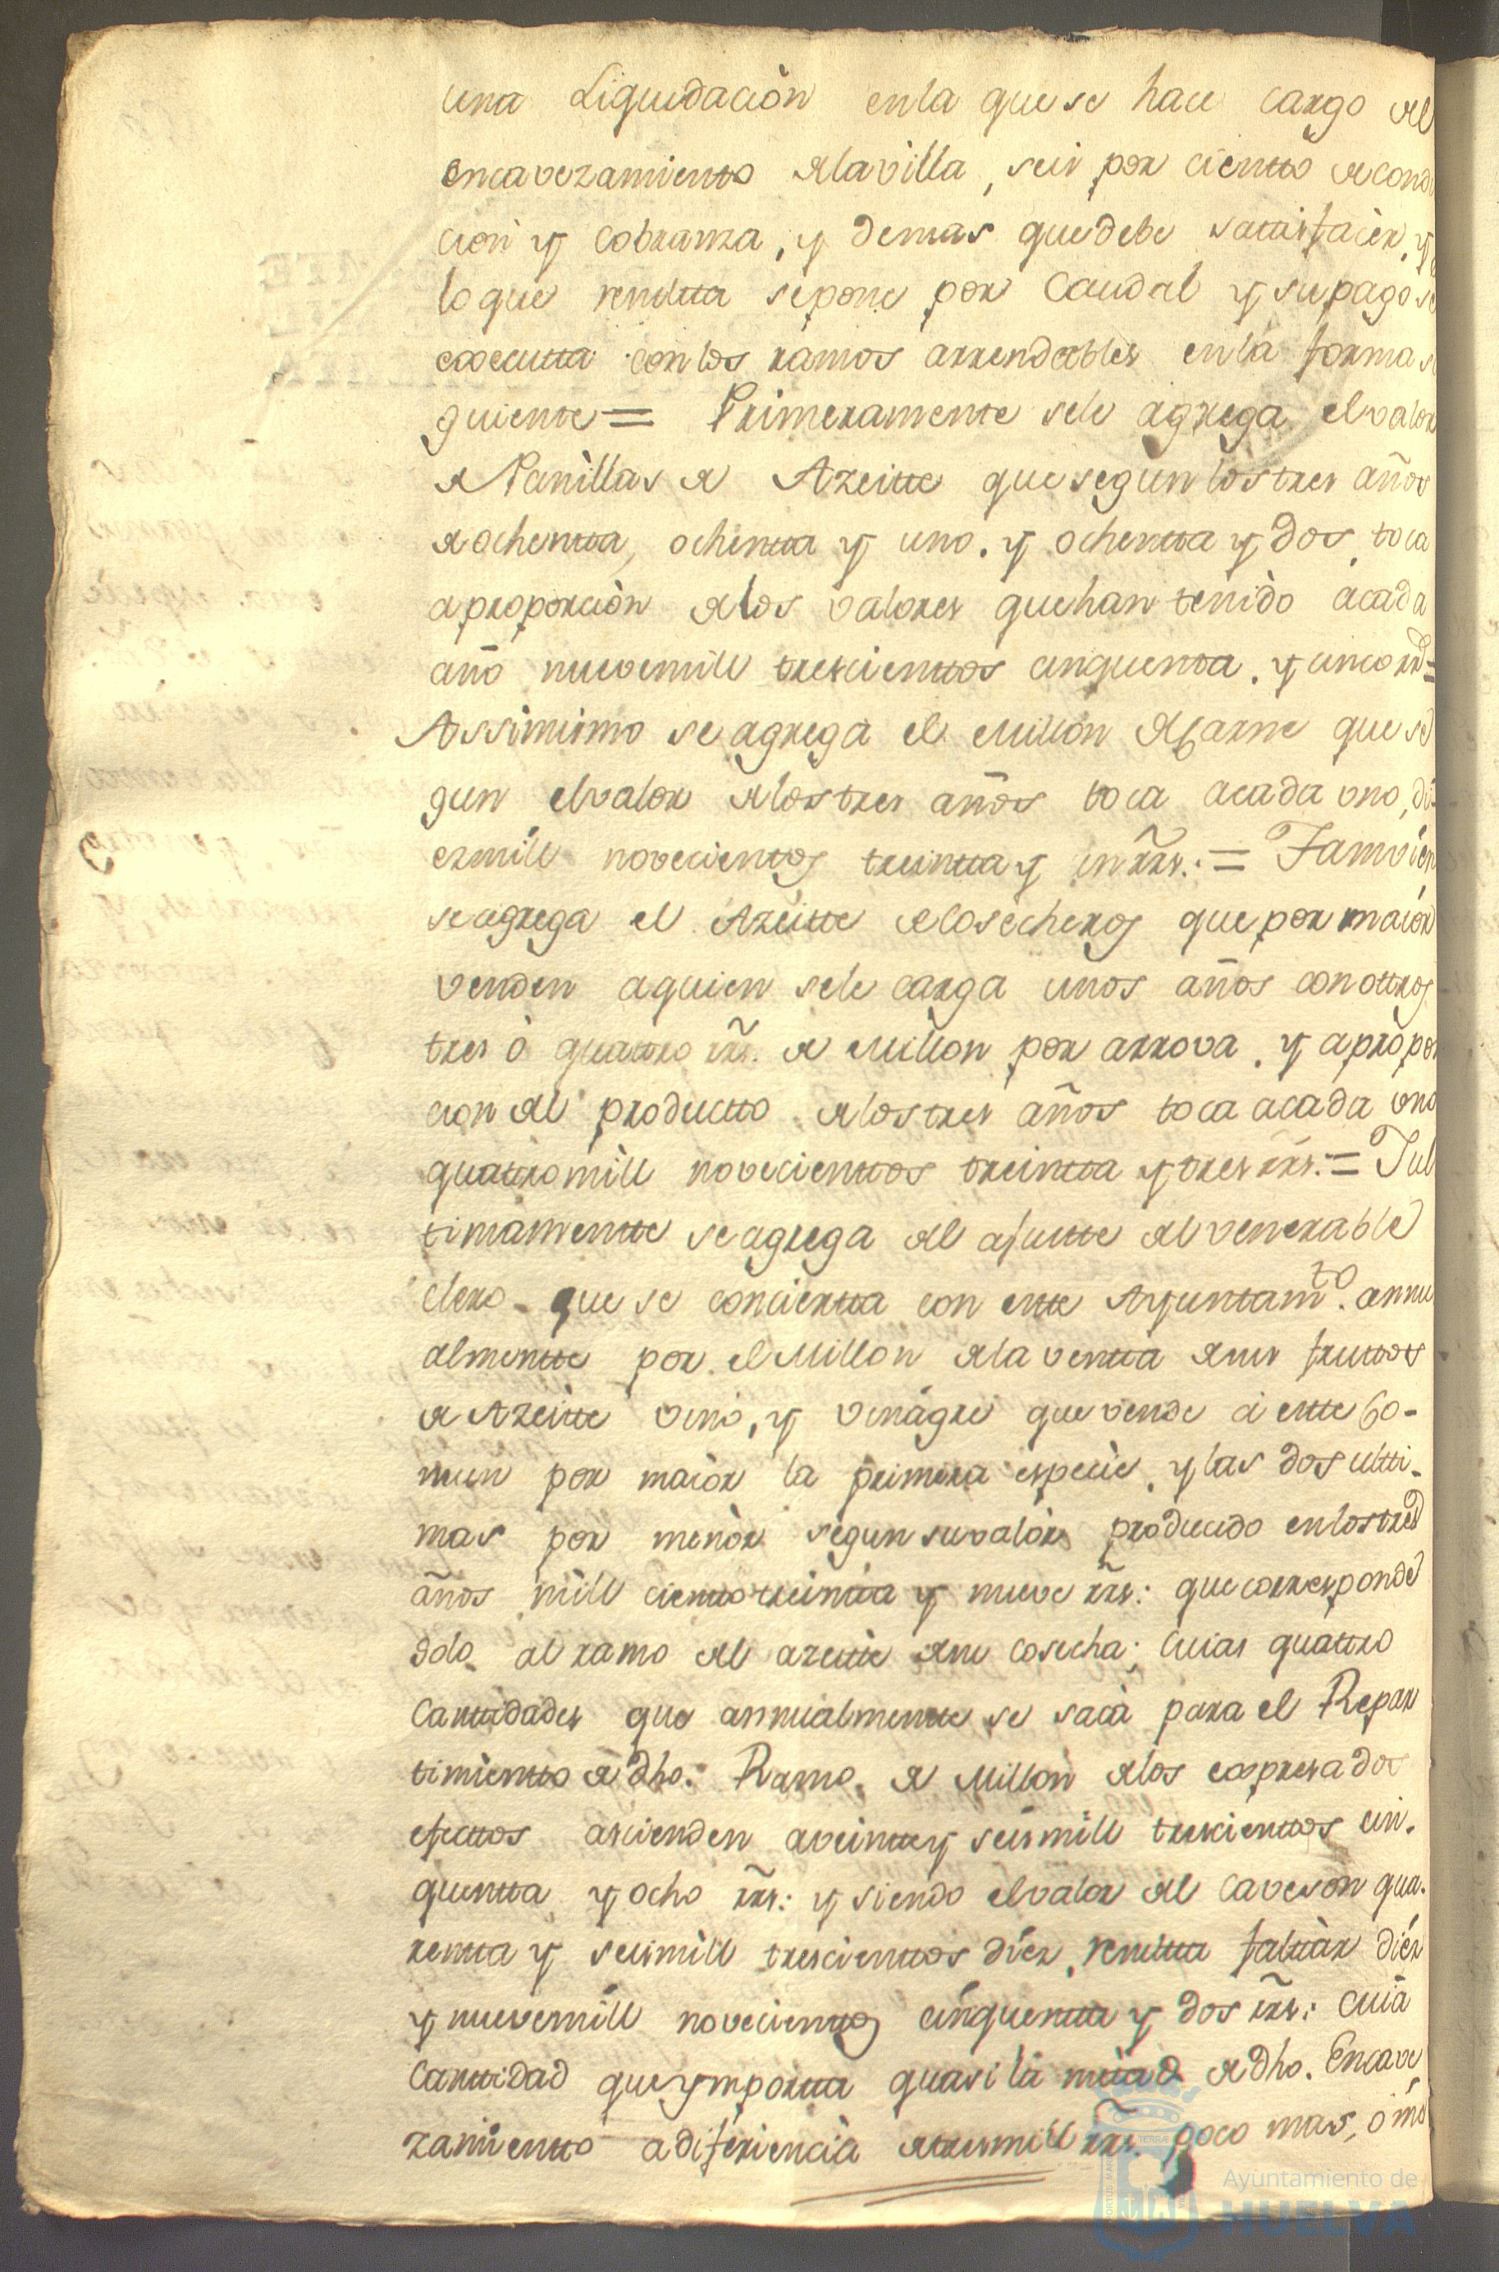 una Liquidaciòn enla que se hace cargo del
encavezamientto dela villa, seis por cientto de condu
cion y cobranza, y demas que debe sattisfacèr, y
lo que resultta se pone por Caudal y su pago se
executta con los ramos arrendables en la forma si
guiente = Primeramente sele agrega el valor
de Panillas de Azeitte que segun los tres años
de ochentta, ochentta y uno, y ochentta y dos, toca
a proporciòn delos valores que han tenido àcada
año nuevemill trescienttos cinquenta, y cinco rrs =
Assimismo se agrega el Millòn de Carne que se
gun el valor delos tres años toca acada uno, di
ezmill novecienttos treintta y un rrs. = Tamvièn
se agrega el Azeitte de Cosecheros que por maiòr
venden a quien sele carga unos años con ottros
tres ò quattro rrs. de Millon por arrova, y a propor
cion del productto delos tres años toca acada uno
quattromill novecienttos treintta y tres rrs. = Iul
timamentte se agrega del ajustte del venerable
Clero que se conciertta con estte Ayuntamto. annu
almentte por el Millon dela ventta de sus fruttos
de Azeitte vino, y vinàgre que vende à estte Co-
mun por maiòr la primera especie, y las dos ultti-
mas por menòr segun su valòr producido en los tres
años mill cientto treintta y nueve rrs: que corresponde
solo al ramo del azeitte de su cosecha; cuias quattro
Canttidades que annualmentte se sacà para el Repar
timientto de dho. Ramo de Millòn delos expresados
efecttos ascienden aveintte y seismill trescienttos cin-
quentta y ocho rrs: y siendo el valor del Caveson qua-
rentta y seismill trescienttos dièz, resultta falttàr dièz
y nuevemill novecienttos cinquentta y dos rrs: cuià
Canttidad que ymportta quasi la mitad de dho. Encave
zamientto a diferiencia de tresmill rrs. poco mas, o mò
Ayuntamiento de
HUELVA